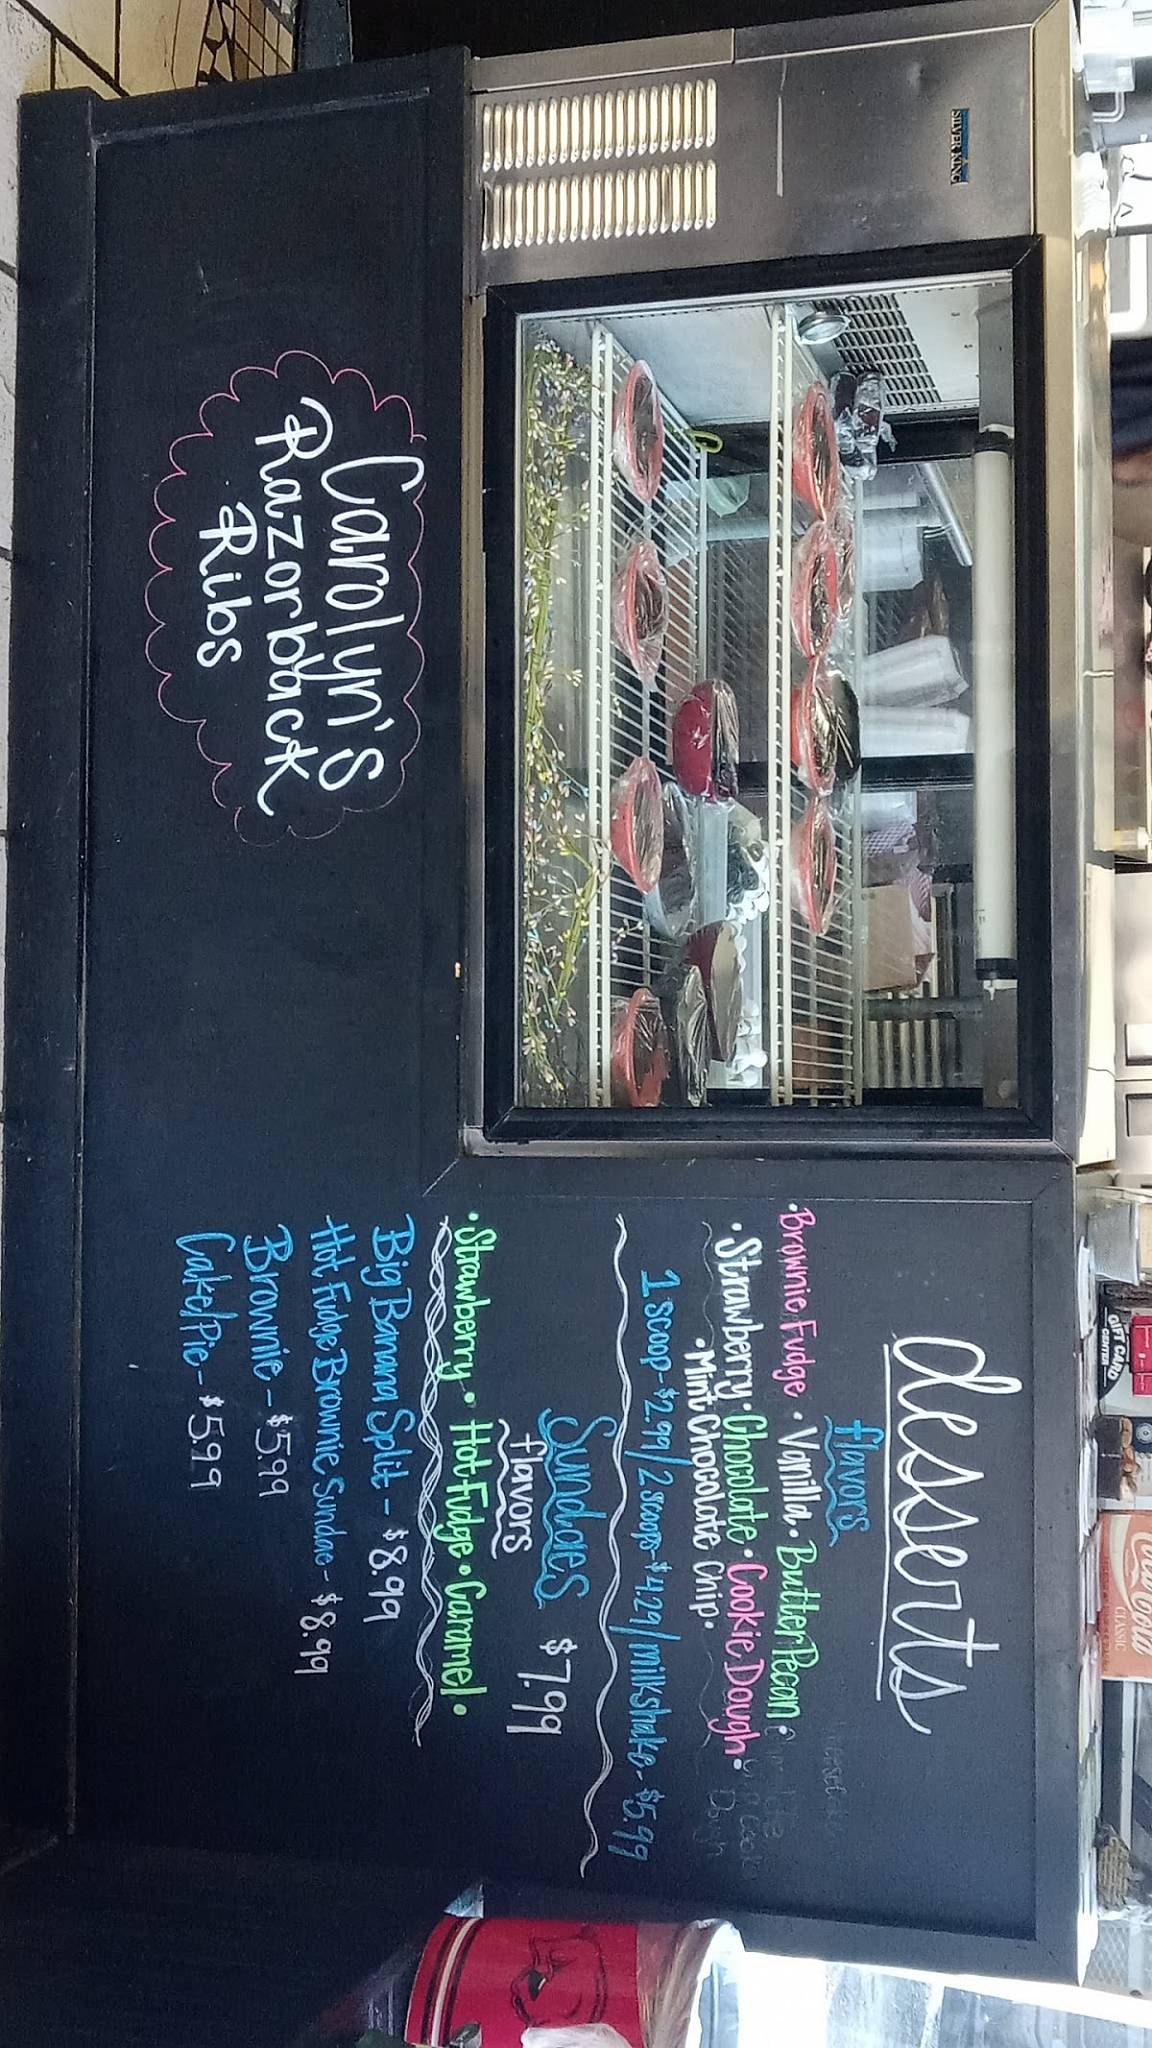 SILVER KING
Desserts
flavors
• Brownie Fudge • Vanilla • Butter Pecan •
• Strawberry • Chocolate • Cookie Dough •
• Mint Chocolate Chip •
1 scoop - $2.99/2 scoops - $4.29/milkshake - $5.99
Sundaes $7.99
flavors
• Strawberry • Hot Fudge • Caramel •
Big Banana Split - $8.99
Hot Fudge Brownie Sundae - $8.99
Brownie - $5.99
Cake/Pie - $5.99
Carolyn's
Razorback
Ribs
GIFT CARD
CENTER
Coca-Cola
CLASSIC